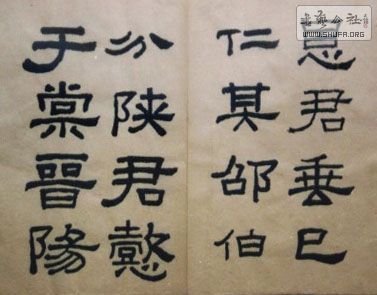 書藝公社
WWW.SHUFA.ORG
君垂巳
仁其邵伯
分陕君懿
于棠晉陽